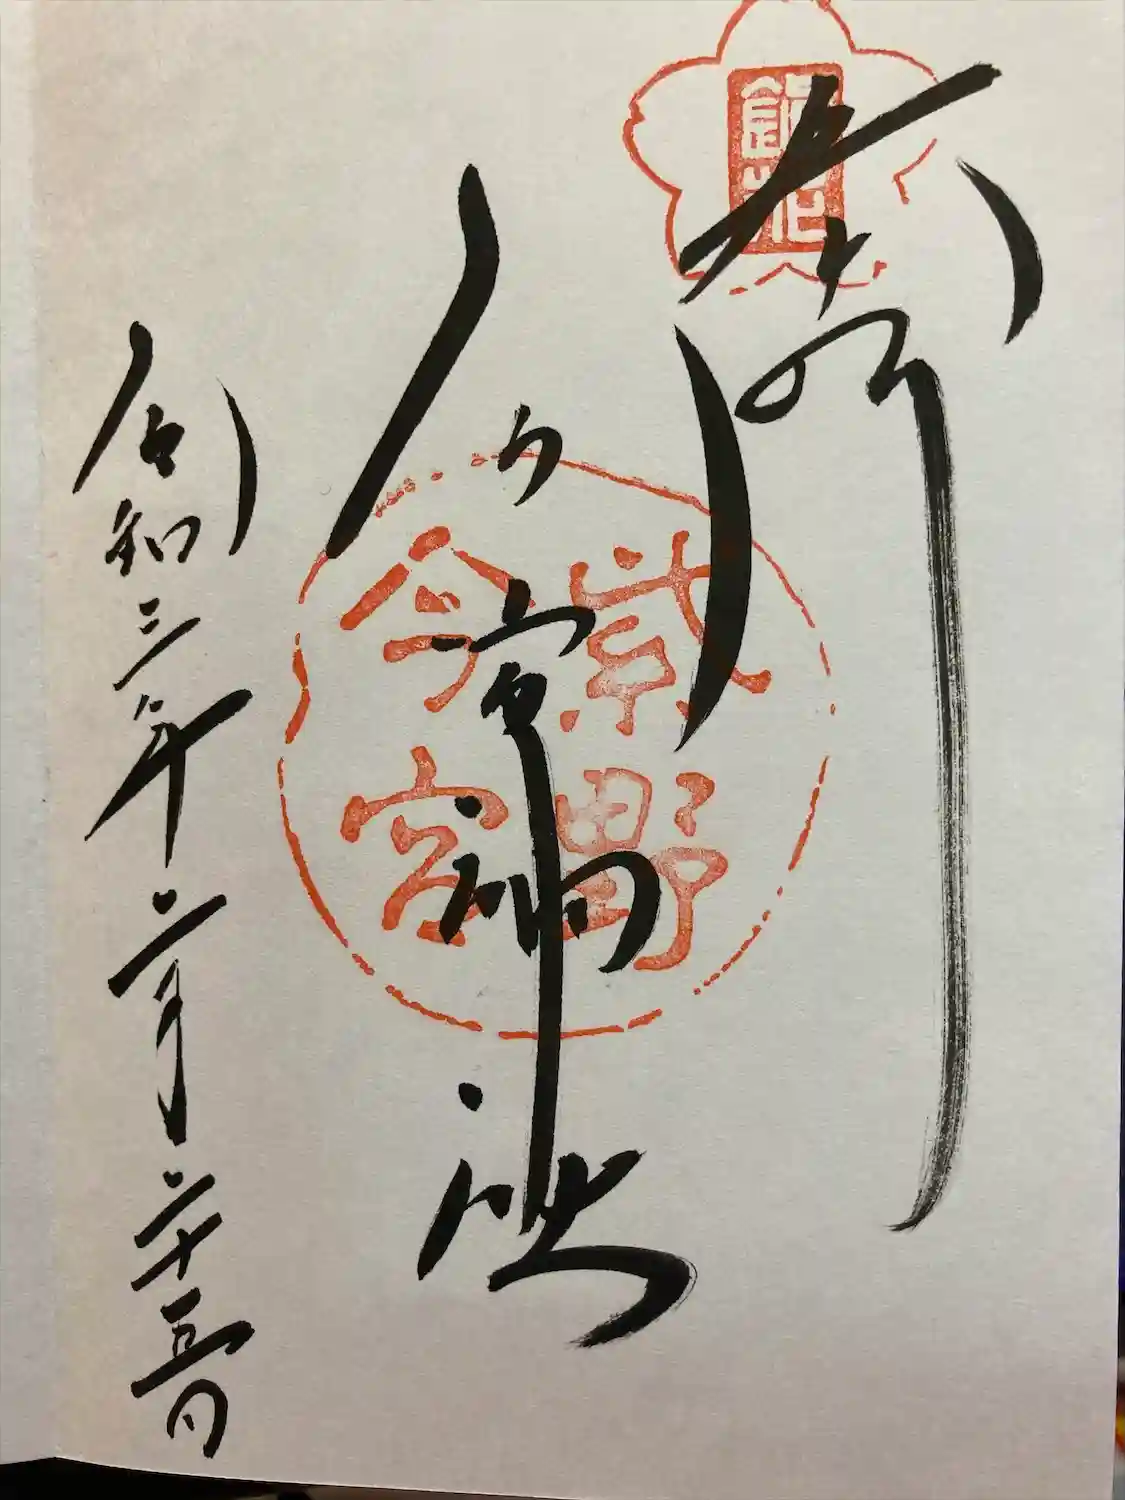 奉拝
鎮花
今宮神社
紫野
今宮
令和三年二月二十五日